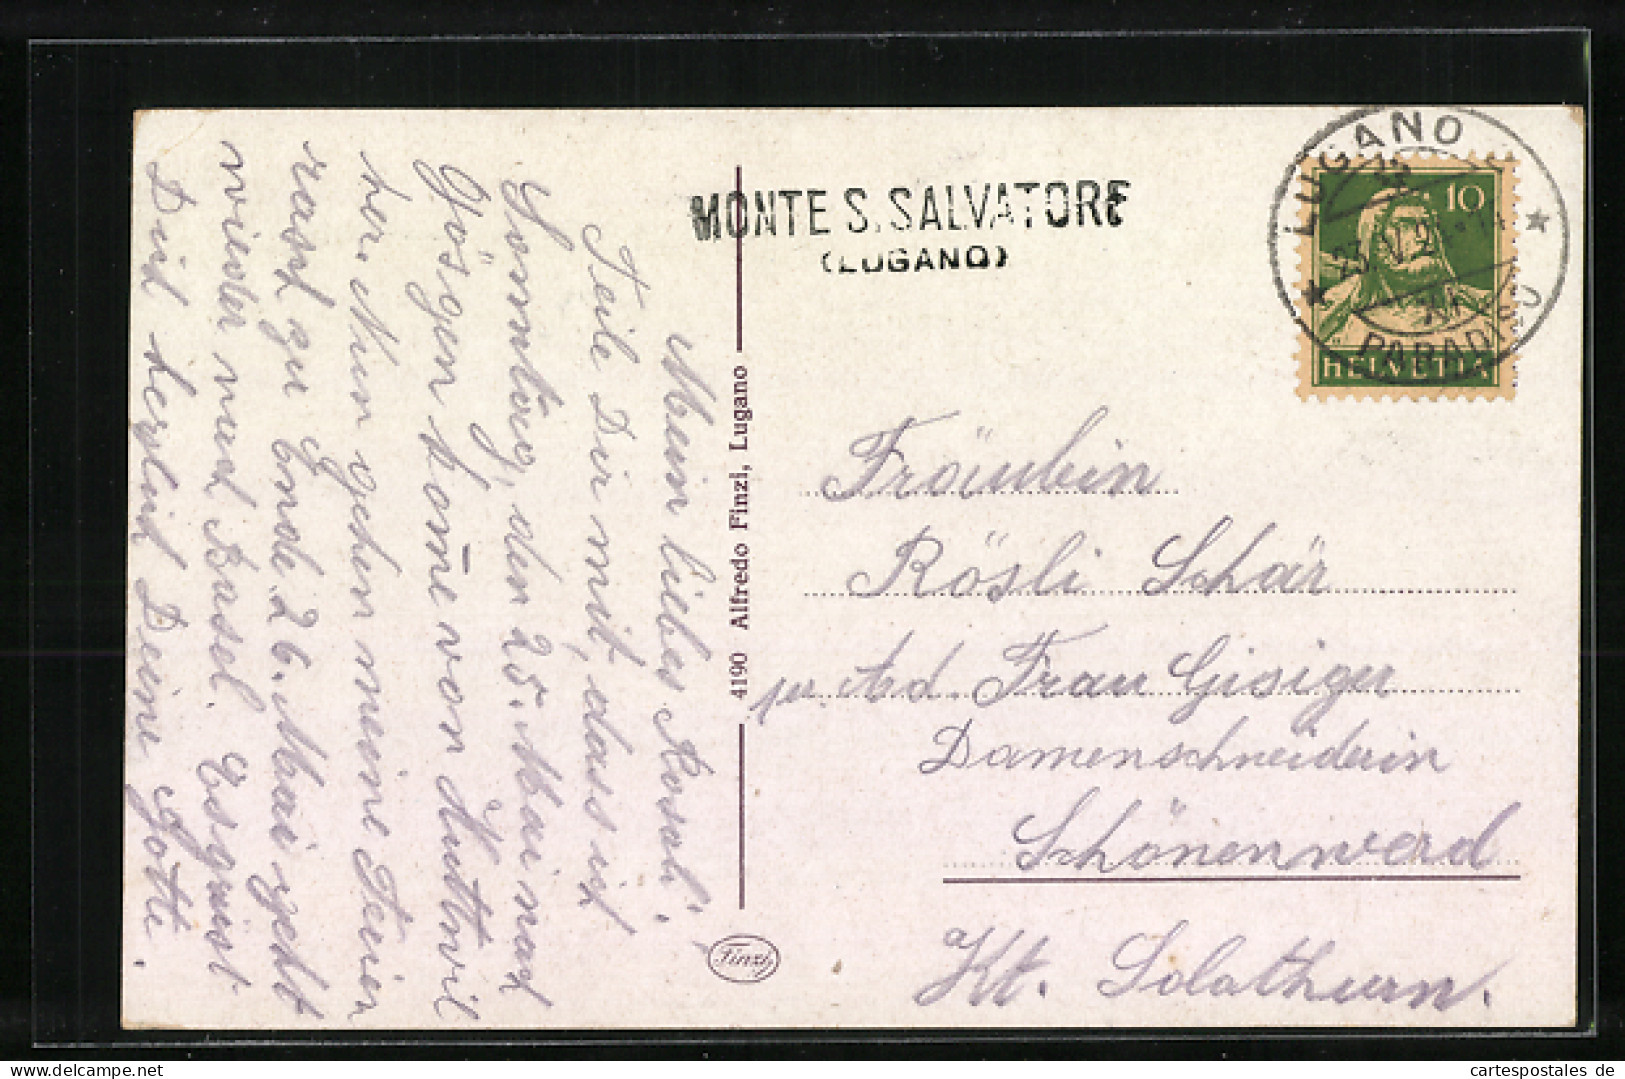 Mein liebes Rosul!
Teile Dir mit, dass ich
Sonntag, den 25. Mai nach
Gösgen kom̄e von Huttwil
her. Nun gehen meine Ferien
rasch zu Ende. 26. Mai geht
wieder nach Basel. Es grüsst
Dich herzlich Deine Gotte.
4190 Alfredo Finzi, Lugano
Finzi
MONTE S. SALVATORE
(LUGANO)
LUGANO
PARADISO
23. V. 2
10
HELVETIA
Fräulein
Rösli Schär
per Ad Frau Gisiger
Damenschneiderin
Schönenwerd
Kt. Solothurn.
cartespostales de